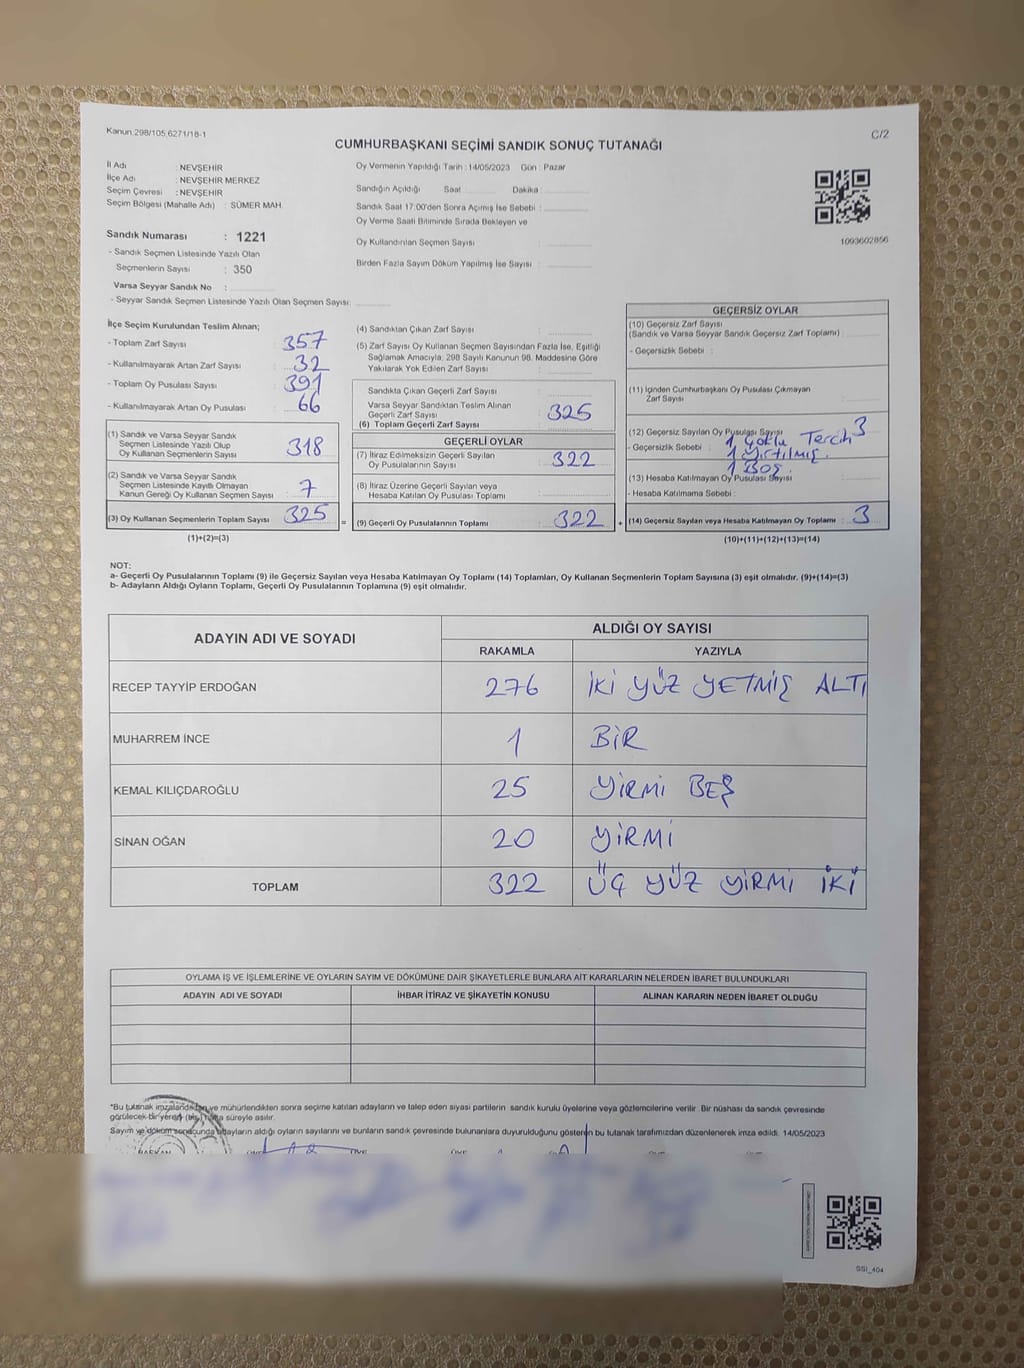 Kanun:298/105,6271/18-1
C/2
CUMHURBAŞKANI SEÇİMİ SANDIK SONUÇ TUTANAĞI
İl Adı : NEVŞEHİR
İlçe Adı : NEVŞEHİR MERKEZ
Seçim Çevresi : NEVŞEHİR
Seçim Bölgesi (Mahalle Adı) : SÜMER MAH.
Sandık Numarası : 1221
- Sandık Seçmen Listesinde Yazılı Olan
Seçmenlerin Sayısı : 350
Varsa Seyyar Sandık No :
- Seyyar Sandık Seçmen Listesinde Yazılı Olan Seçmen Sayısı:
Oy Vermenin Yapıldığı Tarih : 14/05/2023 Gün : Pazar
Sandığın Açıldığı Saat Dakika :
Sandık Saat 17:00'den Sonra Açılmış İse Sebebi :
Oy Verme Saati Bitiminde Sırada Bekleyen ve
Oy Kullandırılan Seçmen Sayısı :
Birden Fazla Sayım Döküm Yapılmış İse Sayısı :
1093602856
İlçe Seçim Kurulundan Teslim Alınan;
- Toplam Zarf Sayısı : 357
- Kullanılmayarak Artan Zarf Sayısı : 32
- Toplam Oy Pusulası Sayısı : 391
- Kullanılmayarak Artan Oy Pusulası : 66
(1) Sandık ve Varsa Seyyar Sandık
Seçmen Listesinde Yazılı Olup
Oy Kullanan Seçmenlerin Sayısı : 318
(2) Sandık ve Varsa Seyyar Sandık
Seçmen Listesinde Kayıtlı Olmayan
Kanun Gereği Oy Kullanan Seçmen Sayısı : 7
(3) Oy Kullanan Seçmenlerin Toplam Sayısı : 325
(1)+(2)=(3)
(4) Sandıktan Çıkan Zarf Sayısı :
(5) Zarf Sayısı Oy Kullanan Seçmen Sayısından Fazla İse, Eşitliği
Sağlamak Amacıyla, 298 Sayılı Kanunun 98. Maddesine Göre
Yakılarak Yok Edilen Zarf Sayısı :
Sandıkta Çıkan Geçerli Zarf Sayısı :
Varsa Seyyar Sandıktan Teslim Alınan
Geçerli Zarf Sayısı :
(6) Toplam Geçerli Zarf Sayısı : 325
GEÇERLİ OYLAR
(7) İtiraz Edilmeksizin Geçerli Sayılan
Oy Pusulalarının Sayısı : 322
(8) İtiraz Üzerine Geçerli Sayılan veya
Hesaba Katılan Oy Pusulası Toplamı :
= (9) Geçerli Oy Pusulalarının Toplamı : 322 +
GEÇERSİZ OYLAR
(10) Geçersiz Zarf Sayısı
(Sandık ve Varsa Seyyar Sandık Geçersiz Zarf Toplamı) :
- Geçersizlik Sebebi :
(11) İçinden Cumhurbaşkanı Oy Pusulası Çıkmayan
Zarf Sayısı :
(12) Geçersiz Sayılan Oy Pusulası Sayısı : 3
- Geçersizlik Sebebi : 1 Çoklu Tercih
1 Yırtılmış.
1 BOŞ.
(13) Hesaba Katılmayan Oy Pusulası Sayısı :
- Hesaba Katılmama Sebebi :
(14) Geçersiz Sayılan veya Hesaba Katılmayan Oy Toplamı : 3
(10)+(11)+(12)+(13)=(14)
NOT:
a- Geçerli Oy Pusulalarının Toplamı (9) ile Geçersiz Sayılan veya Hesaba Katılmayan Oy Toplamı (14) Toplamları, Oy Kullanan Seçmenlerin Toplam Sayısına (3) eşit olmalıdır. (9)+(14)=(3)
b- Adayların Aldığı Oyların Toplamı, Geçerli Oy Pusulalarının Toplamına (9) eşit olmalıdır.
ADAYIN ADI VE SOYADI ALDIĞI OY SAYISI
RAKAMLA YAZIYLA
RECEP TAYYİP ERDOĞAN 276 İKİ YÜZ YETMİŞ ALTI
MUHARREM İNCE 1 BİR
KEMAL KILIÇDAROĞLU 25 YİRMİ BEŞ
SİNAN OĞAN 20 YİRMİ
TOPLAM 322 ÜÇ YÜZ YİRMİ İKİ
OYLAMA İŞ VE İŞLEMLERİNE VE OYLARIN SAYIM VE DÖKÜMÜNE DAİR ŞİKAYETLERLE BUNLARA AİT KARARLARIN NELERDEN İBARET BULUNDUKLARI
ADAYIN ADI VE SOYADI İHBAR İTİRAZ VE ŞİKAYETİN KONUSU ALINAN KARARIN NEDEN İBARET OLDUĞU
*Bu tutanak imzalandıktan ve mühürlendikten sonra seçime katılan adayların ve talep eden siyasi partilerin sandık kurulu üyelerine veya gözlemcilerine verilir. Bir nüshası da sandık çevresinde
görülecek bir yerede (bir) hafta süreyle asılır.
Sayım ve döküm sonucunda adayların aldığı oyların sayılarını ve bunların sandık çevresinde bulunanlara duyurulduğunu gösteren bu tutanak tarafımızdan düzenlenerek imza edildi. 14/05/2023
BAŞKAN
SSI_404